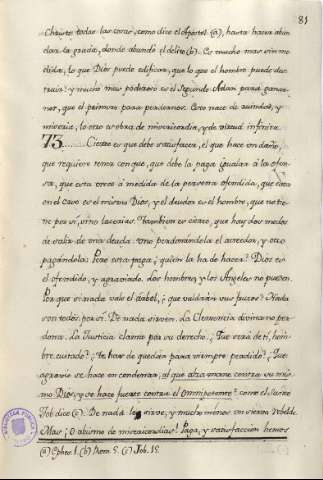 81
Christo todas las cosas, como dice el Apostol (a), hasta hacer abun
dar la gracia, donde abundó el delito (b). Es mucho mas sin me
dida, lo que Dios puede edificar, que lo que el hombre puede des
truir: y mucho mas poderoso es el Segundo Adam para ganar
nos, que el primero para perdernos. Esto nace de ruindad, y
miseria, lo otro es obra de misericordia, y de virtud infinita.
73. Cierto es que debe satisfacer, el que hace un daño,
que requiere tenga con que, que debe la paga igualar a la ofen
sa, que esta crece á medida de la persona ofendida, que
en el caso es el mismo Dios, y el deudor es el hombre, que no tie
ne por sí, sino lacerias. Tambien es cierto, que hay dos modos
de salir de una deuda: uno perdonandola el acreedor, y otro
pagandola. Pero esta paga ¿quien la ha de hacer? Dios es
el ofendido, y agraviado: los hombres, y los Angeles no pueden.
Porque si nada vale el arbol, ¿que valdrán sus frutos? Nada
son todos por sí. De nada sirven. La Clemencia divina no per
dona. La Justicia clama por su derecho. ¿Que será de tí, hom
bre cuitado? ¿Te has de quedar para siempre perdido? ¿
agravio se hace en condenar, al que alza mano contra su mis
mo Dios, y se hace fuerte contra el Omnipotente? como el Santo
Job dice (c). De nada le sirve, y mucho menos un siervo rebelde.
Mas ¡O abismo de misericordias! Paga, y satisfaccion hemos
(a) Ephes. 1. (b) Rom. 5. (c) Job. 15.
BIBLIOTECA PUBLICA